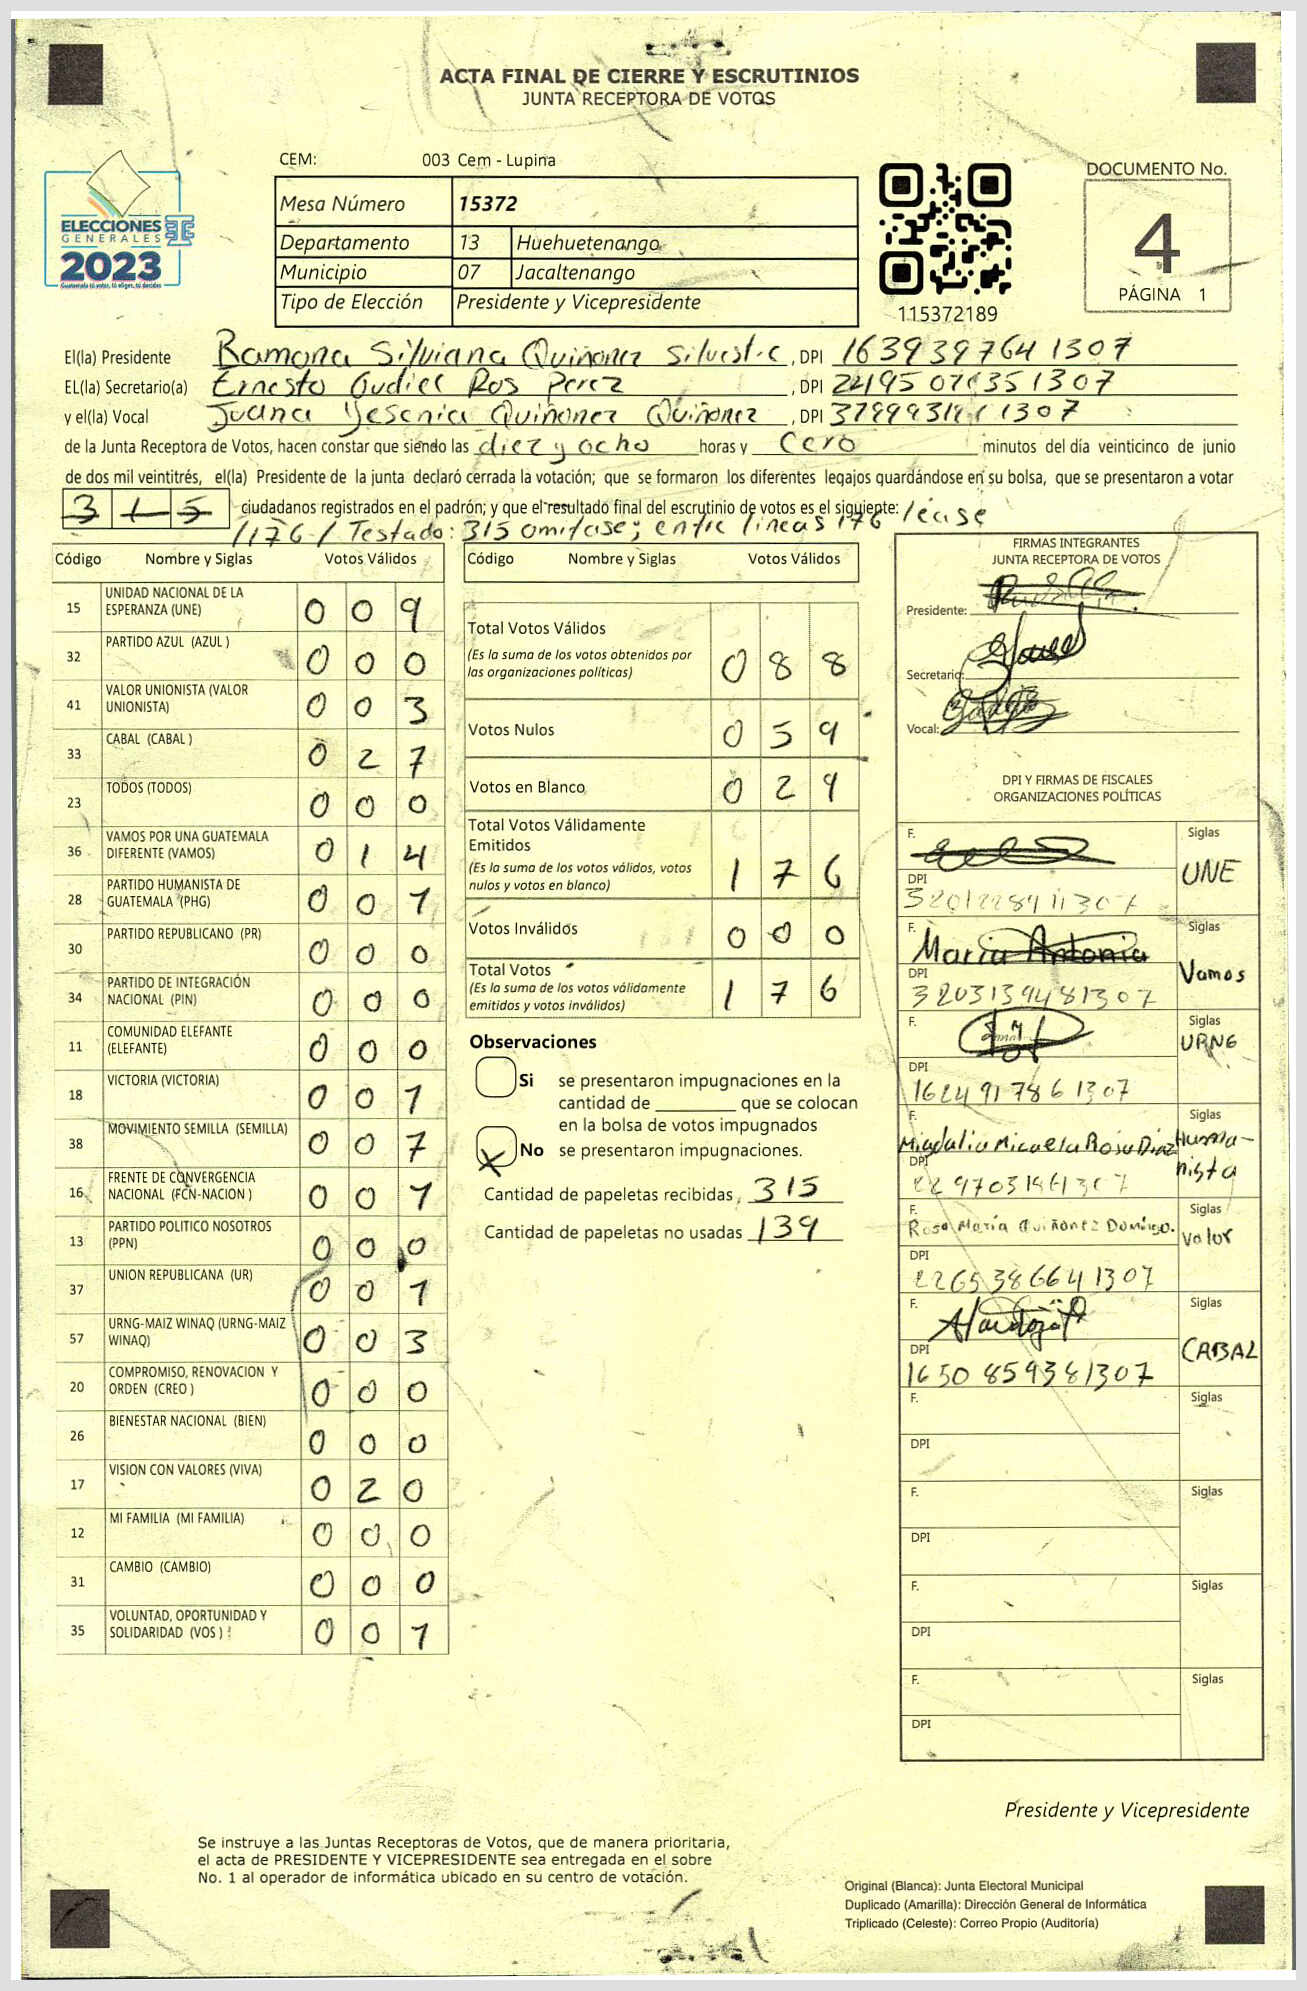 ACTA FINAL DE CIERRE Y ESCRUTINIOS
JUNTA RECEPTORA DE VOTOS
CEM: 003 Cem - Lupina
ELECCIONES
GENERALES
2023
Guatemala tú votas, tú eliges, tú decides
Mesa Número 15372
Departamento 13 Huehuetenango
Municipio 07 Jacaltenango
Tipo de Elección Presidente y Vicepresidente
115372189
DOCUMENTO No.
4
PÁGINA 1
El(la) Presidente Ramona Silviana Quiñonez Silvestre, DPI 1639397641307
EL(la) Secretario(a) Ernesto Gudiel Ros Perez, DPI
y el(la) Vocal Juana Yesenia Quiñonez Quiñonez, DPI
de la Junta Receptora de Votos, hacen constar que siendo las diez y ocho horas y cero minutos del día veinticinco de junio
de dos mil veintitrés, el(la) Presidente de la junta declaró cerrada la votación; que se formaron los diferentes legajos guardándose en su bolsa, que se presentaron a votar
315 ciudadanos registrados en el padrón; y que el resultado final del escrutinio de votos es el siguiente:
/176/ Testado: 315 omitase; entre lineas 176 léase
Código Nombre y Siglas Votos Válidos
15 UNIDAD NACIONAL DE LA ESPERANZA (UNE) 0 0 9
32 PARTIDO AZUL (AZUL ) 0 0 0
41 VALOR UNIONISTA (VALOR UNIONISTA) 0 0 3
33 CABAL (CABAL ) 0 2 7
23 TODOS (TODOS) 0 0 0
36 VAMOS POR UNA GUATEMALA DIFERENTE (VAMOS) 0 1 4
28 PARTIDO HUMANISTA DE GUATEMALA (PHG) 0 0 1
30 PARTIDO REPUBLICANO (PR) 0 0 0
34 PARTIDO DE INTEGRACIÓN NACIONAL (PIN) 0 0 0
11 COMUNIDAD ELEFANTE (ELEFANTE) 0 0 0
18 VICTORIA (VICTORIA) 0 0 1
38 MOVIMIENTO SEMILLA (SEMILLA) 0 0 7
16 FRENTE DE CONVERGENCIA NACIONAL (FCN-NACION ) 0 0 1
13 PARTIDO POLITICO NOSOTROS (PPN) 0 0 0
37 UNION REPUBLICANA (UR) 0 0 1
57 URNG-MAIZ WINAQ (URNG-MAIZ WINAQ) 0 0 3
20 COMPROMISO, RENOVACION Y ORDEN (CREO ) 0 0 0
26 BIENESTAR NACIONAL (BIEN) 0 0 0
17 VISION CON VALORES (VIVA) 0 2 0
12 MI FAMILIA (MI FAMILIA) 0 0 0
31 CAMBIO (CAMBIO) 0 0 0
35 VOLUNTAD, OPORTUNIDAD Y SOLIDARIDAD (VOS ) 0 0 1
Código Nombre y Siglas Votos Válidos
Total Votos Válidos 0 8 8
(Es la suma de los votos obtenidos por
las organizaciones políticas)
Votos Nulos 0 5 9
Votos en Blanco 0 2 9
Total Votos Válidamente
Emitidos 1 7 6
(Es la suma de los votos válidos, votos
nulos y votos en blanco)
Votos Inválidos 0 0 0
Total Votos 1 7 6
(Es la suma de los votos válidamente
emitidos y votos inválidos)
Observaciones
Si se presentaron impugnaciones en la
cantidad de ________ que se colocan
en la bolsa de votos impugnados
X No se presentaron impugnaciones.
Cantidad de papeletas recibidas 315
Cantidad de papeletas no usadas 139
FIRMAS INTEGRANTES
JUNTA RECEPTORA DE VOTOS
Presidente:
Secretario:
Vocal:
DPI Y FIRMAS DE FISCALES
ORGANIZACIONES POLÍTICAS
F. Siglas
UNE
DPI
F. Maria Antonia Siglas
Vamos
DPI
3203139481307
F. Siglas
URNG
DPI
1624917861307
F. Siglas
Migdalia Micaela Rosa Diaz Humanista
DPI
F. Siglas
Rosa María Quiñonez Domingo. Valor
DPI
2265386641307
F. Siglas
CABAL
DPI
1650859381307
F. Siglas
DPI
F. Siglas
DPI
F. Siglas
DPI
F. Siglas
DPI
Presidente y Vicepresidente
Se instruye a las Juntas Receptoras de Votos, que de manera prioritaria,
el acta de PRESIDENTE Y VICEPRESIDENTE sea entregada en el sobre
No. 1 al operador de informática ubicado en su centro de votación.
Original (Blanca): Junta Electoral Municipal
Duplicado (Amarilla): Dirección General de Informática
Triplicado (Celeste): Correo Propio (Auditoría)